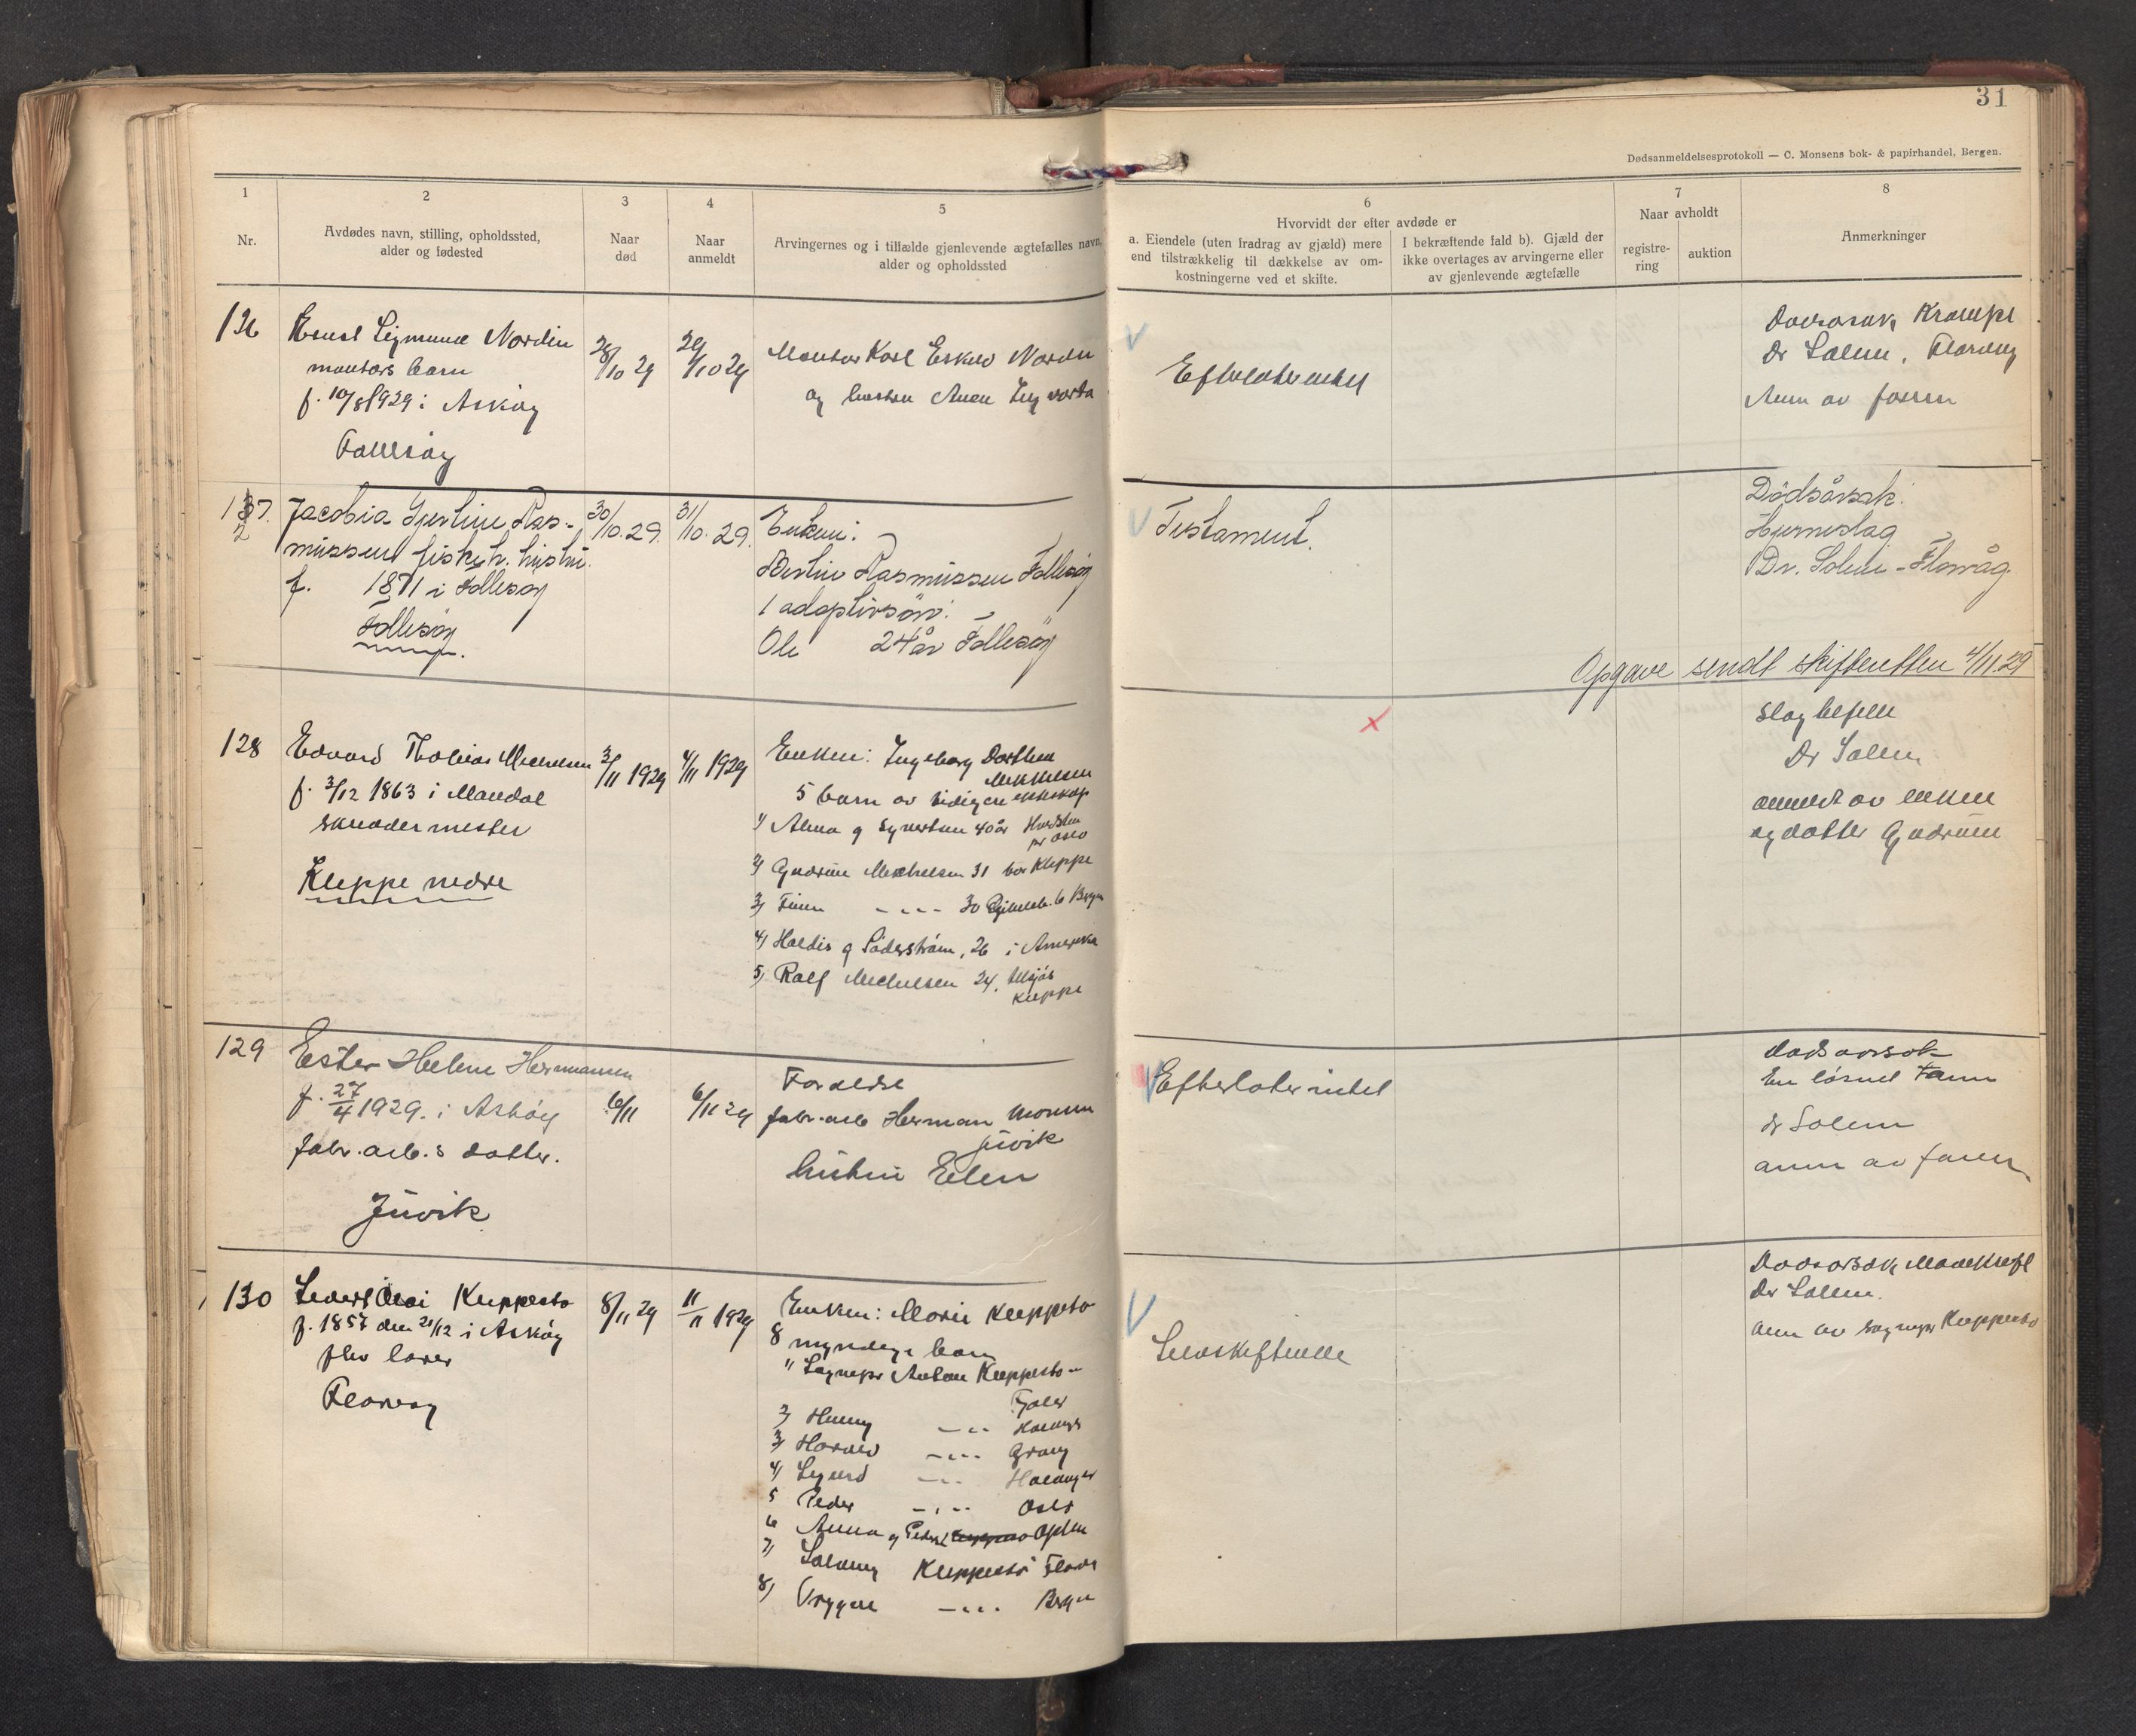 31
Dødsanmeldelsesprotokoll — C. Monsens bok- & papirhandel, Bergen.
1
2
3
4
5
6
7
8
Nr.
Avdødes navn, stilling, opholdssted,
alder og fødested
Naar
død
Naar
anmeldt
Arvingernes og i tilfælde gjenlevende ægtefælles navn,
alder og opholdssted
Hvorvidt der efter avdøde er
a. Eiendele (uten fradrag av gjæld) mere
end tilstrækkelig til dækkelse av om-
kostningerne ved et skifte.
I bekræftende fald b). Gjæld der
ikke overtages av arvingerne eller
av gjenlevende ægtefælle
Naar avholdt
registre-
ring
auktion
Anmerkninger
126
Sigmund Nordin
montørs barn
f. 10/8 1929 i Askøy
Follesøy
28/10 29
29/10 29
Montør Karl Nordin
og hustru
Efterlater intet
Dødsårsak, Krampe
Dr Solem, Florvåg
Anm av faren
137.
2
Jacobia Gjertine Ras-
mussen fiskeh. hustru.
f. 1871 i Follesøy
Follesøy
30/10. 29.
31/10. 29.
Enkem:
Bertin Rasmussen Follesøy
1 adoptivsøn:
Ole 24 år Follesøy
Testament.
Dødsårsak:
Hjerneslag
Dr. Solem - Florvåg.
Opgave sendt skifteretten 4/11.29
128
Edvard Tholias Michelsen
f. 3/12 1863 i Mandal
skreddermester
Kleppe nedre
3/11 1929
4/11 1929
Enken: Ingeborg Dorthea
Mikkelsen
5 barn av tidigere ekteskap
1) Alma g Syvertsen 40 år
pr Oslo
2) Gudrun Michelsen 31 bor Kleppe
3) Finn -"- 30 6 Bergen
4) Haldis g Söderström, 26 i Amerika
5) Ralf Michelsen 24, tilsjøs
Kleppe
x
Slagtilfelle
Dr Solem
anmeldt av enken
og datter Gudrun
129
Ester Helene Hermansen
f. 27/4 1929. i Askøy
fabr.arb.s datter.
Juvik
6/11
6/11 29
Foreldre
fabr.arb Herman Monsen
Juvik
hustru Elen
Efterlater intet
dødsårsak
En løsnet Tann
dr Solem
anm av faren
130
Kleppestø
f. 1857 den 21/12 i Askøy
fhv lærer
Florvåg
8/11 29
11/11 1929
Enken: Marie Kleppestø
8 myndige barn
1) Sogneprest Anton Kleppestø
Fjaler
2) Henny -"-
3) Harald -"-
4) Sigurd -"-
5 Peder -"- Oslo
6 Anna g
7) Solveig Kleppestø Florv
8) Tryggve -"- Bergen
Selvskiftende
Dødsårsak, Mavekreft
Dr Solem.
anm av sognepr Kleppestø